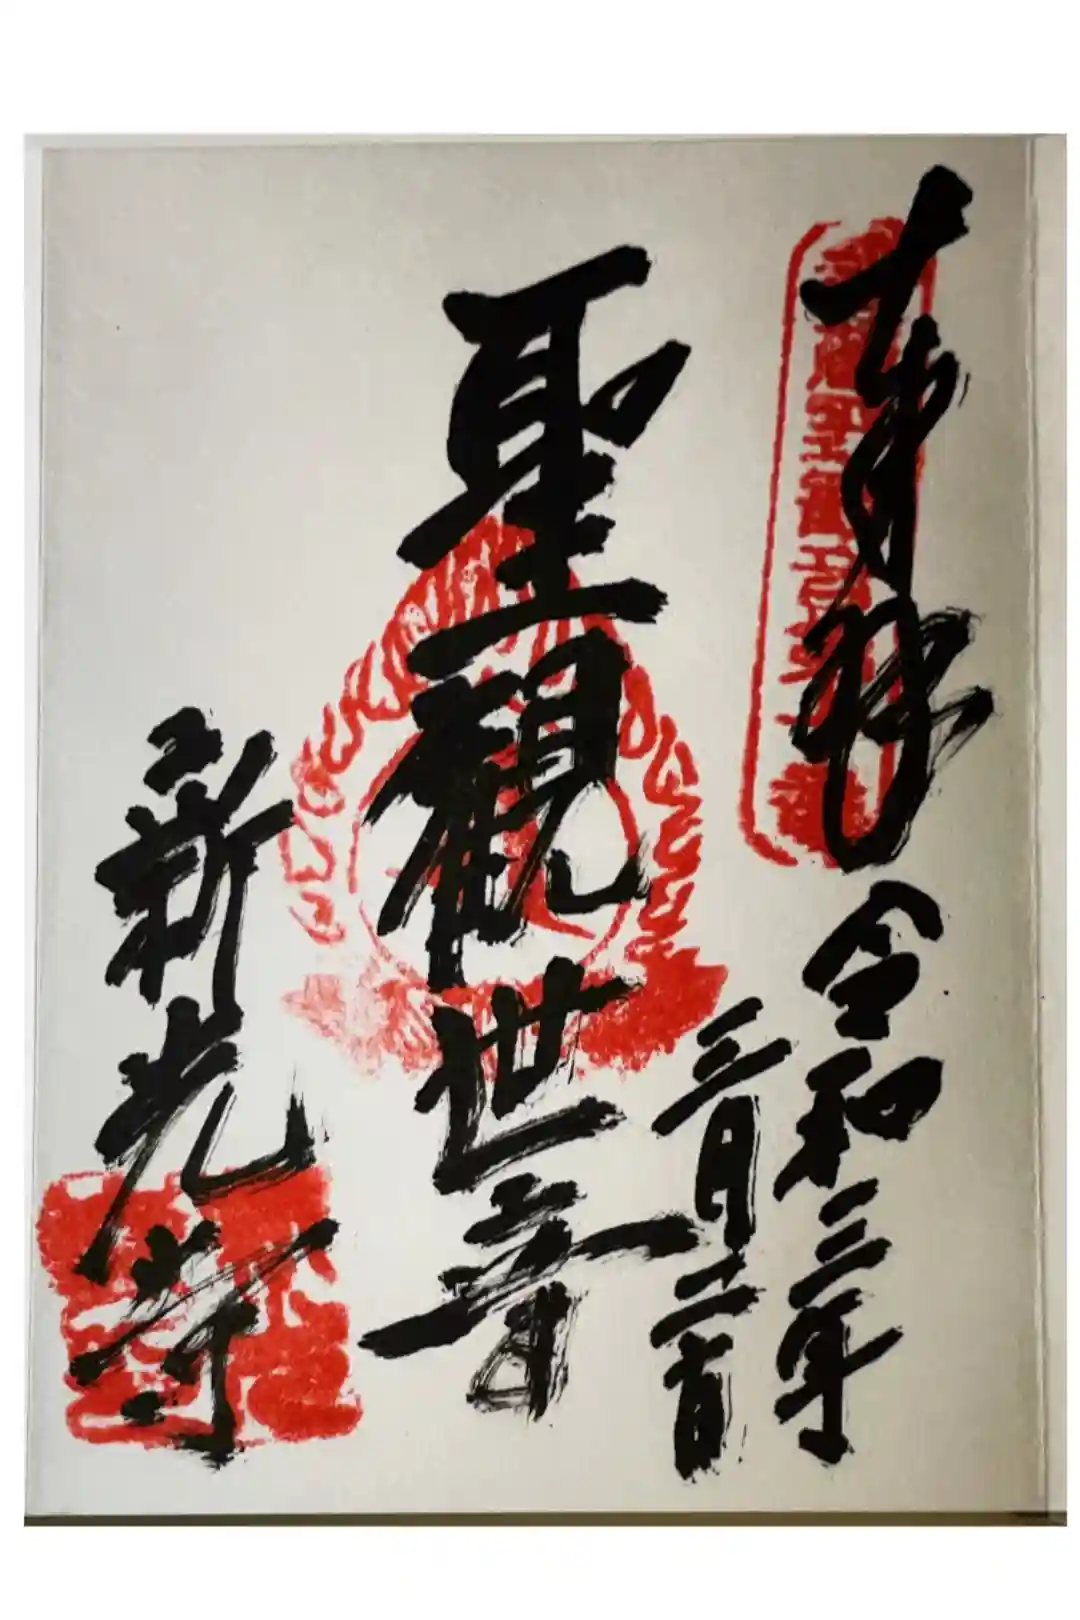 奉拝
令和三年
三月二十日
聖観世音
新光寺